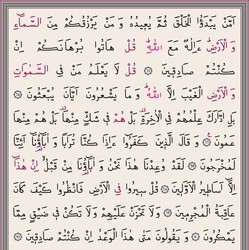 أَمَّن يَبْدَؤُا۟ ٱلْخَلْقَ ثُمَّ يُعِيدُهُۥ وَمَن يَرْزُقُكُم مِّنَ ٱلسَّمَآءِ
وَٱلْأَرْضِ أَءِلَـٰهٌ مَّعَ ٱللَّهِ قُلْ هَاتُوا۟ بُرْهَـٰنَكُمْ إِن
كُنتُمْ صَـٰدِقِينَ قُل لَّا يَعْلَمُ مَن فِى ٱلسَّمَـٰوَٰتِ
وَٱلْأَرْضِ ٱلْغَيْبَ إِلَّا ٱللَّهُ وَمَا يَشْعُرُونَ أَيَّانَ يُبْعَثُونَ
بَلِ ٱدَّٰرَكَ عِلْمُهُمْ فِى ٱلْـَٔاخِرَةِ بَلْ هُمْ فِى شَكٍّ مِّنْهَا بَلْ هُم مِّنْهَا
عَمُونَ وَقَالَ ٱلَّذِينَ كَفَرُوٓا۟ أَءِذَا كُنَّا تُرَٰبًا وَءَابَآؤُنَآ أَئِنَّا
لَمُخْرَجُونَ لَقَدْ وُعِدْنَا هَـٰذَا نَحْنُ وَءَابَآؤُنَا مِن قَبْلُ إِنْ هَـٰذَآ
إِلَّآ أَسَـٰطِيرُ ٱلْأَوَّلِينَ قُلْ سِيرُوا۟ فِى ٱلْأَرْضِ فَٱنظُرُوا۟ كَيْفَ كَانَ
عَـٰقِبَةُ ٱلْمُجْرِمِينَ وَلَا تَحْزَنْ عَلَيْهِمْ وَلَا تَكُن فِى ضَيْقٍ مِّمَّا
يَمْكُرُونَ وَيَقُولُونَ مَتَىٰ هَـٰذَا ٱلْوَعْدُ إِن كُنتُمْ صَـٰدِقِينَ